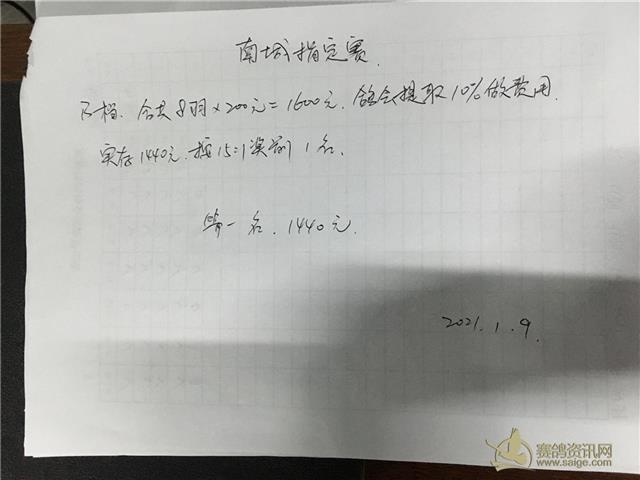 南城指定赛.
B档. 合共8羽×200元=1600元. 鸽会提取10%做费用.
实存1440元. 按15:1奖前1名.
第一名. 1440元.
2021.1.9.
赛鸽资讯网
www.saige.com